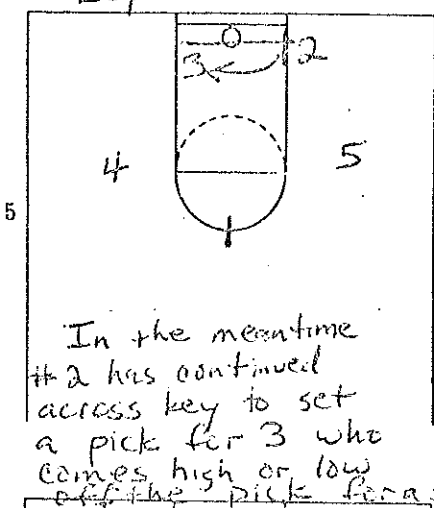 3 2
4 5
5
In the meantime
#2 has continued
across key to set
a pick for 3 who
comes high or low
off the pick for a